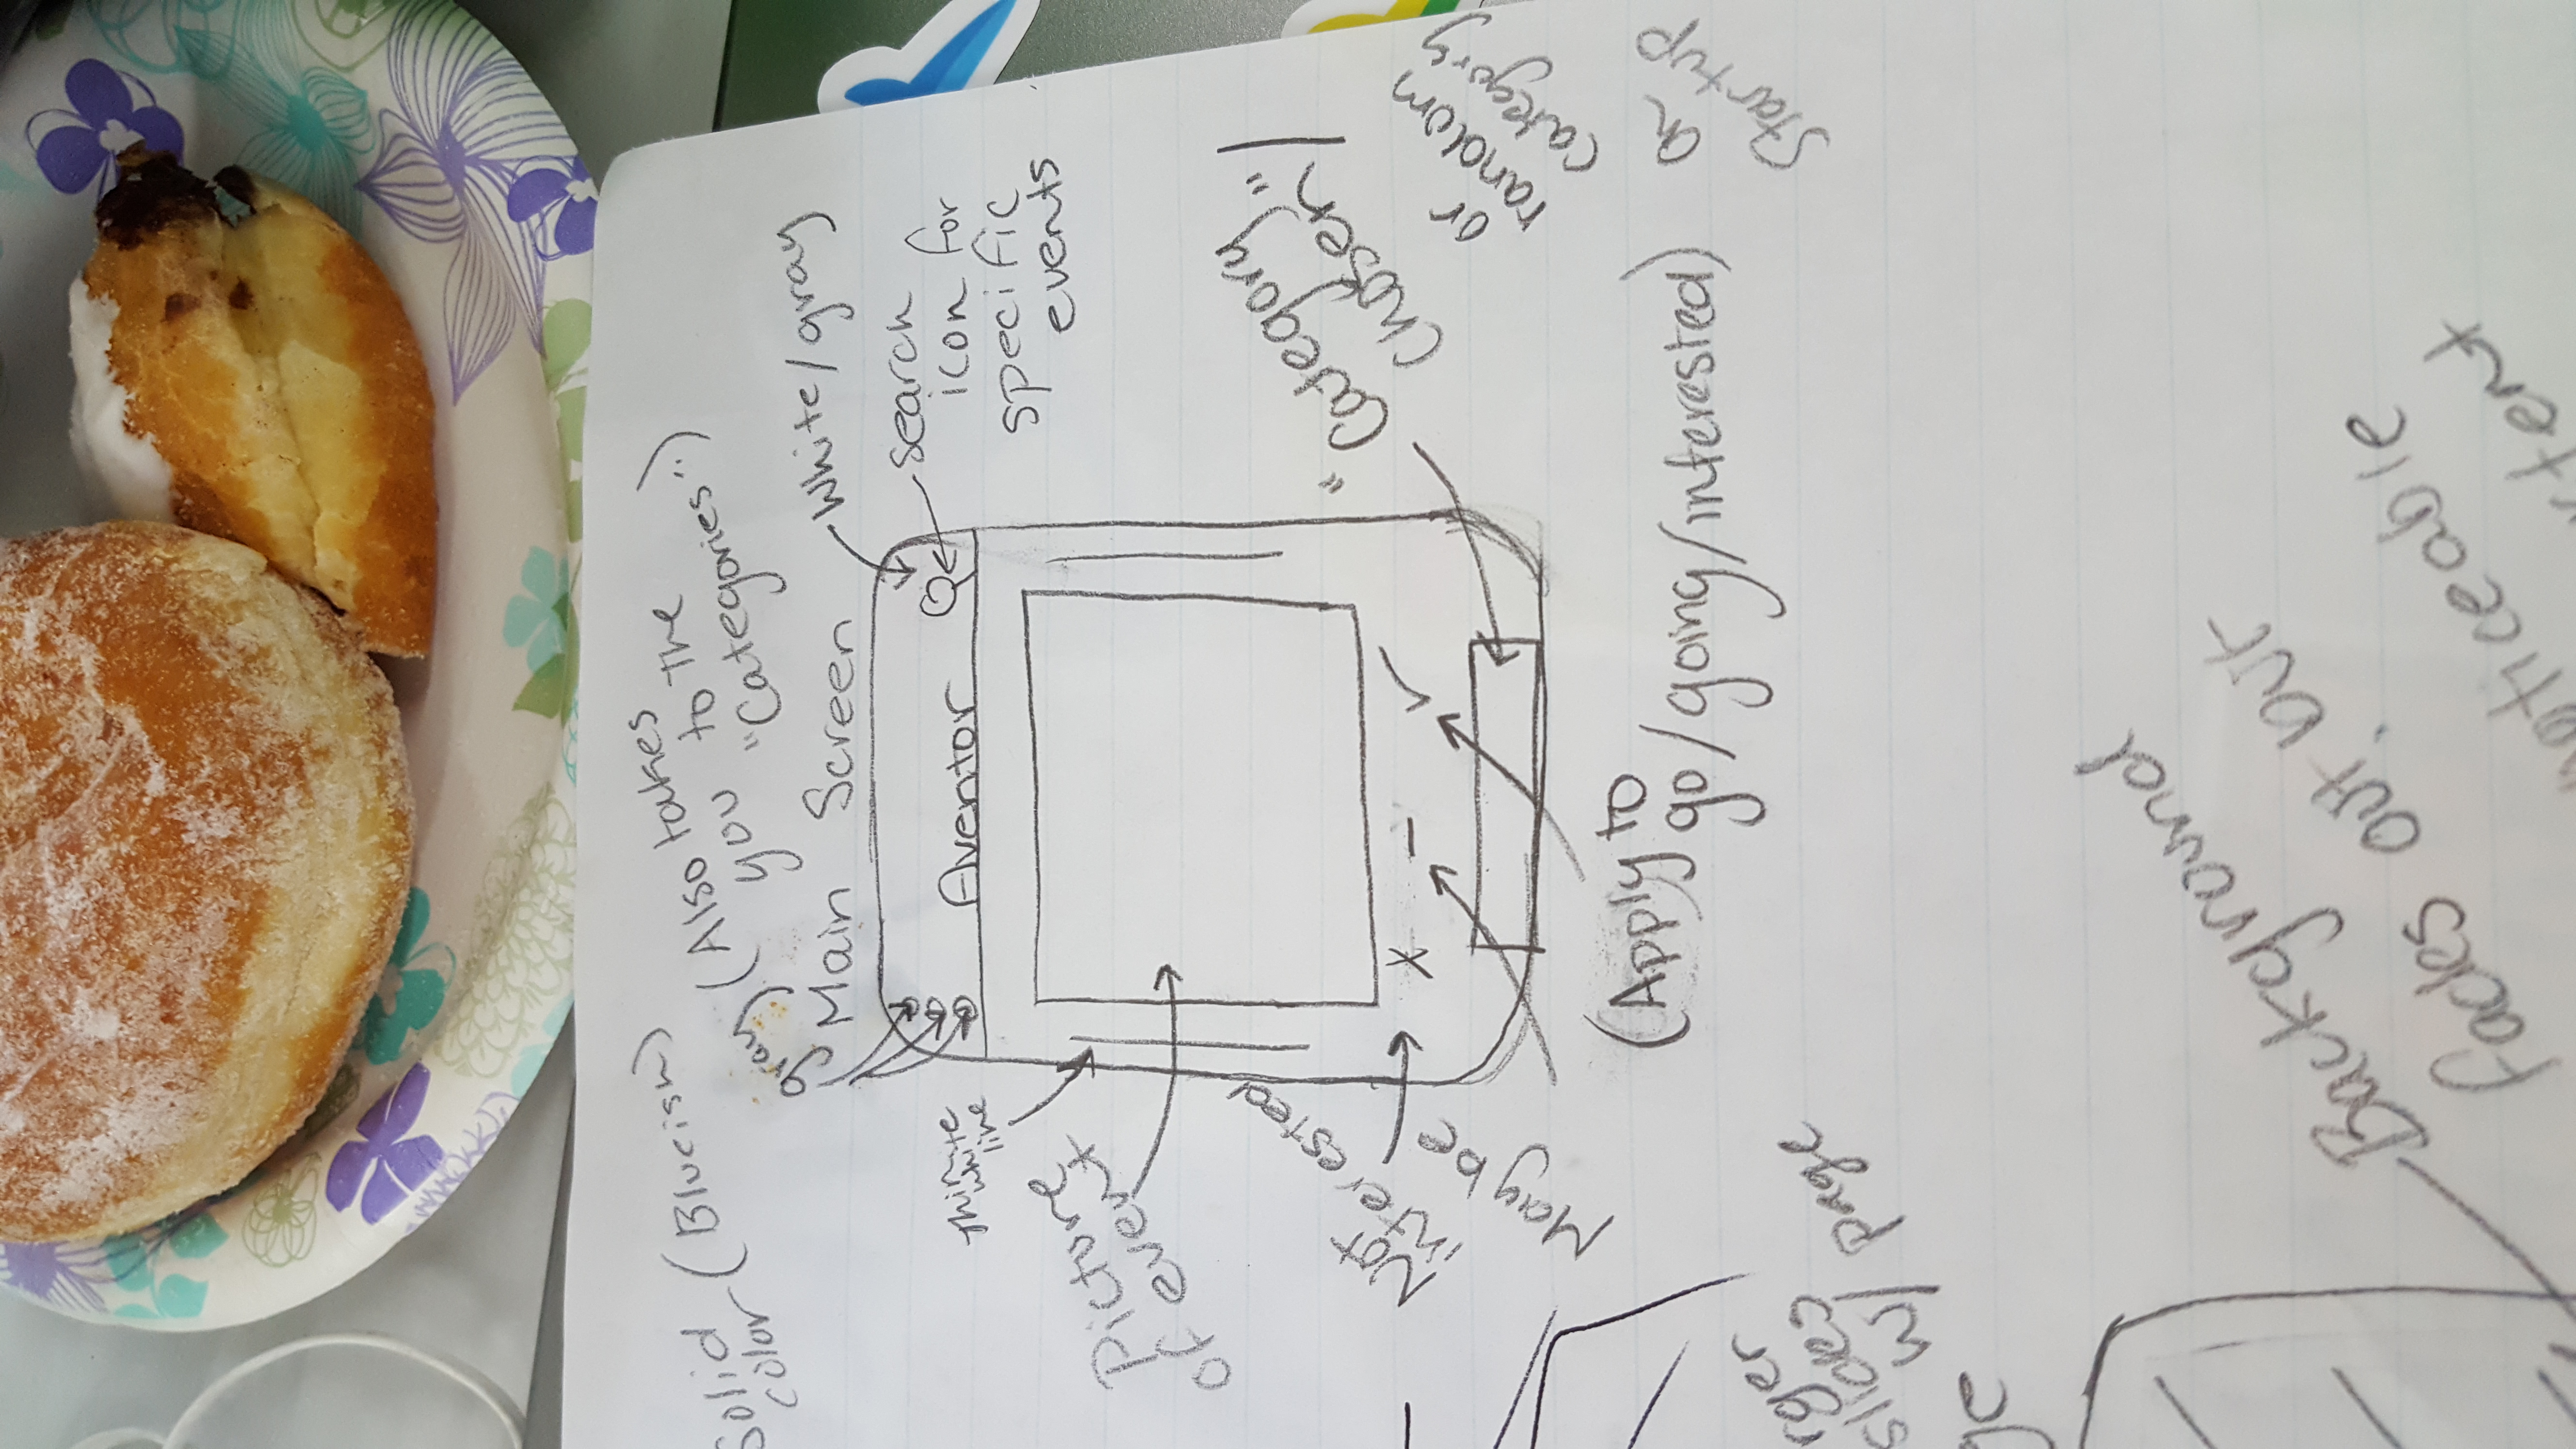 (Also takes
you to the
"Categories":)
Solid
color (Blueish)
gray)
Main Screen
White/gray
search
icon for
specific
events
Aventor
thin
white
line
Picture
of event
x - ✓
Not
interested
Maybe
"Category"
Chosen"
or
random
category
on
Startup
(Apply to
go/going/interested)
Background
fades out, but
w/ page